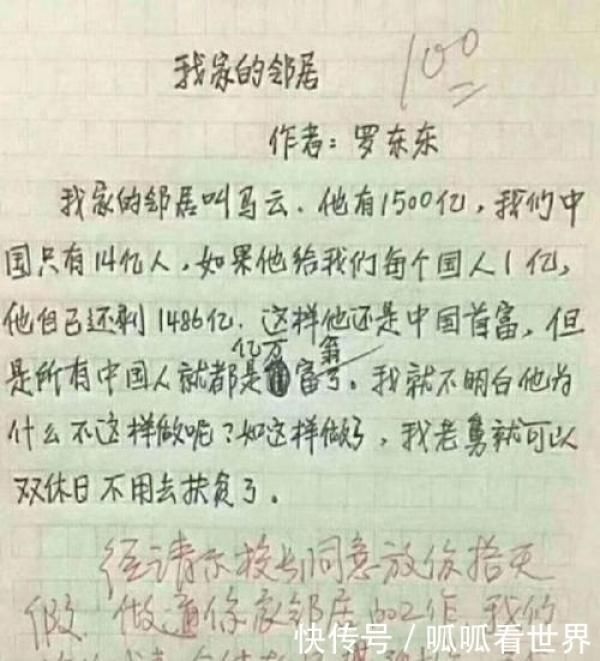 我家的邻居
100
作者：罗东东
我家的邻居叫马云．他有1500亿，我们中
国只有14亿人，如果他给我们每个国人1亿，
他自己还剩1486亿．这样他还是中国首富，但
亿万 翁
是所有中国人就都是富了。我就不明白他为
什么不这样做呢？如这样做了，我老舅就可以
双休日不用去扶贫了。
经请示校长同意放你拾天
假，做通你家邻居的工作 我们
快传号／呱呱看世界